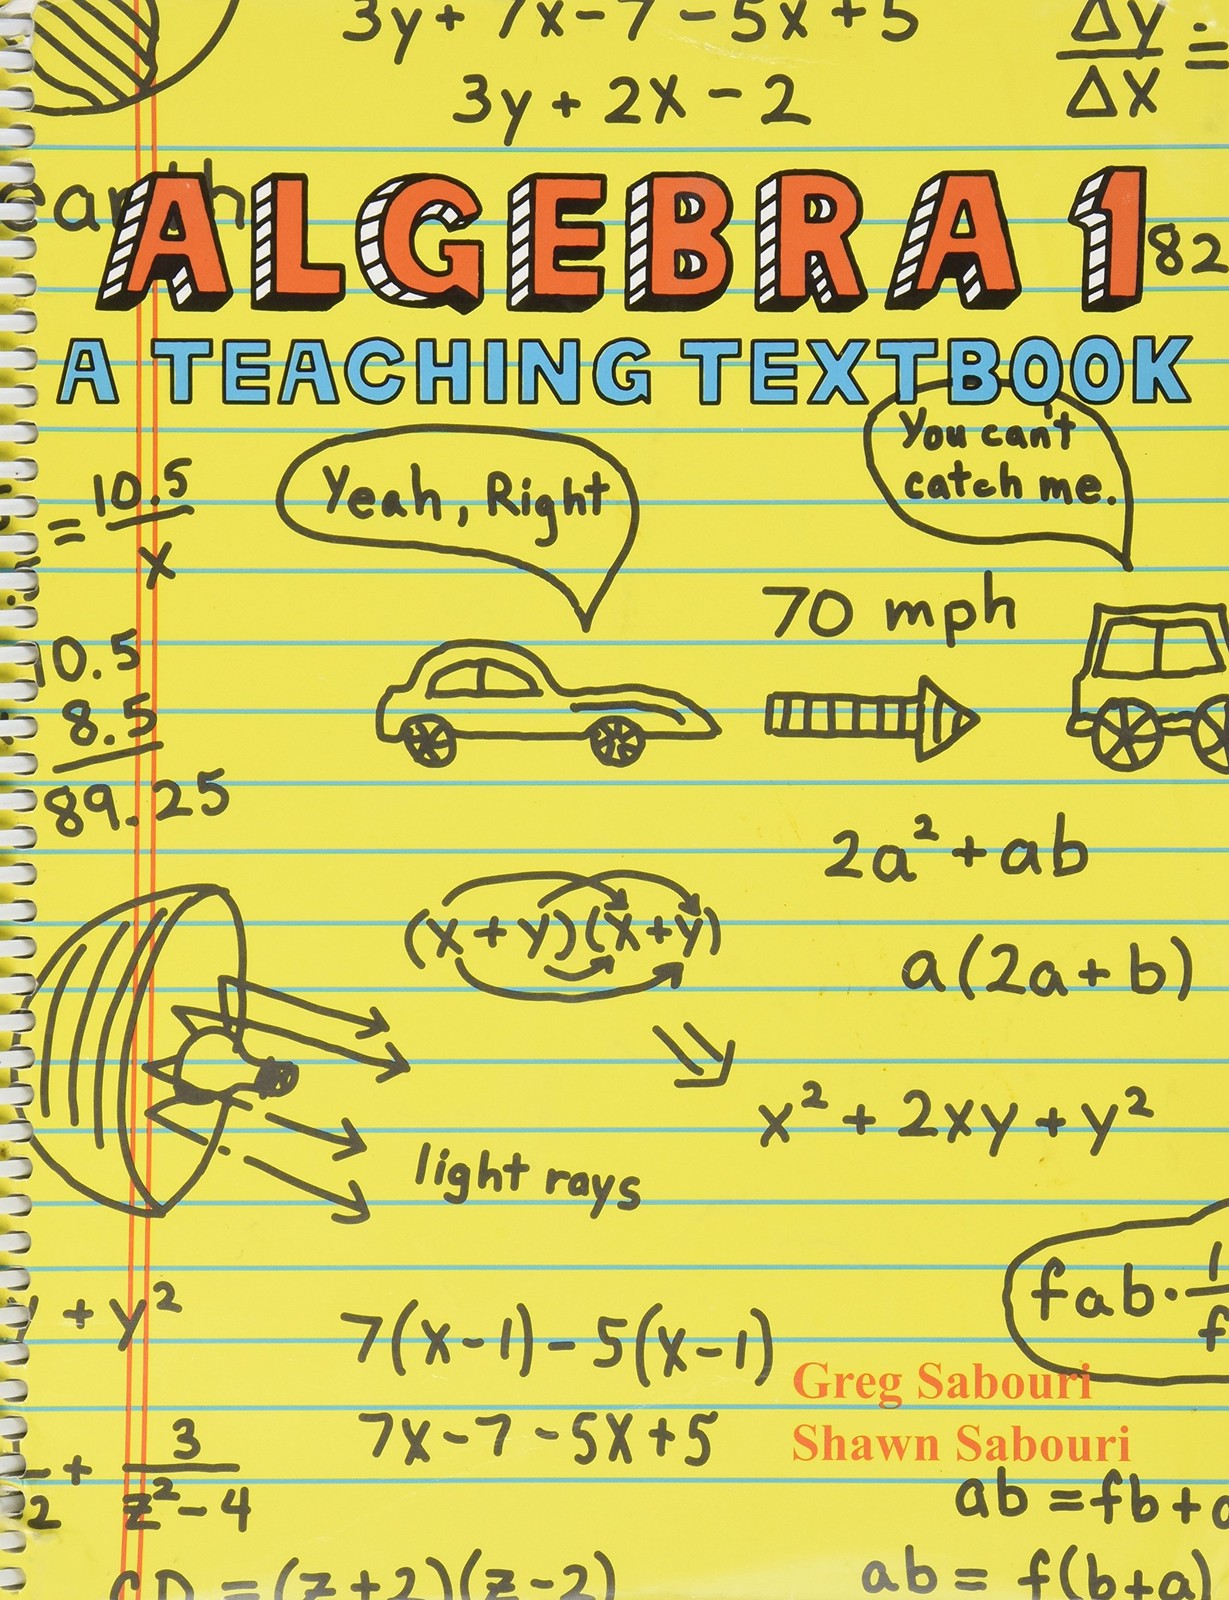 3y + 7x - 7 - 5x + 5
3y + 2x - 2
Δy =
Δx
ALGEBRA 1
82
A TEACHING TEXTBOOK
You can't
catch me.
Yeah, Right
= 10.5
x
70 mph
10.5
8.5
89.25
2a² + ab
(x + y)(x + y)
a(2a + b)
x² + 2xy + y²
light rays
fab · 1
f
+ y²
7(x - 1) - 5(x - 1)
Greg Sabouri
7x - 7 - 5x + 5
Shawn Sabouri
+ 3
2 z² - 4
ab = fb + a
= (z + 2)(z - 2)
ab = f(b + a)